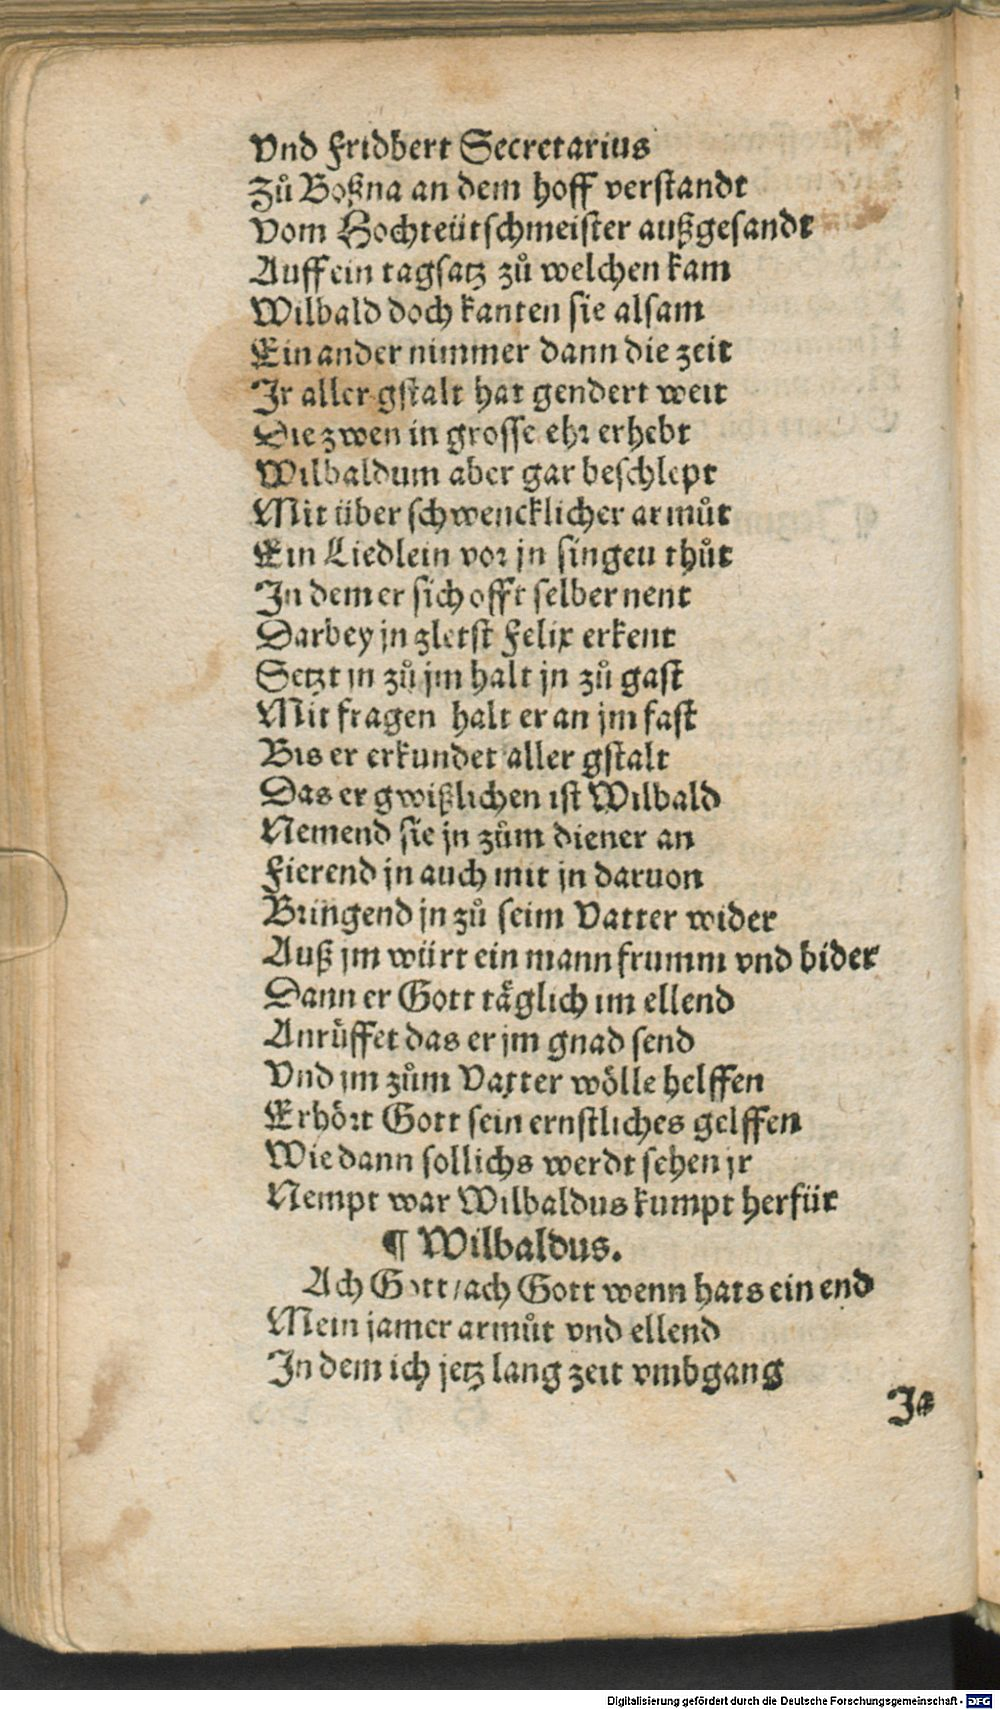 Vnd Fridbert Secretarius
Zů Boßna an dem hoff verstandt
Vom Hochteütschmeister außgesandt
Auff ein tagsatz zů welchen kam
Wilbald doch kanten sie alsam
Ein ander nimmer dann die zeit
Jr aller gstalt hat gendert weit
Die zwen in grosse ehr erhebt
Wilbaldum aber gar beschlept
Mit über schwencklicher armůt
Ein Liedlein vor jn singeu thůt
Jn dem er sich offt selber nent
Darbey jn zletst Felix erkent
Setzt jn zů jm halt jn zů gast
Mit fragen halt er an jm fast
Bis er erkundet aller gstalt
Das er gwißlichen ist Wilbald
Nemend sie jn zům diener an
Fierend jn auch mit jn daruon
Bringend jn zů seim Vatter wider
Auß jm würt ein mann frumm vnd bider
Dann er Gott täglich im ellend
Anrüffet das er jm gnad send
Vnd jm zům Vatter wölle helffen
Erhört Gott sein ernstliches gelffen
Wie dann sollichs werdt sehen jr
Nempt war Wilbaldus kumpt herfür
¶ Wilbaldus.
Ach Gott / ach Gott wenn hats ein end
Mein jamer armůt vnd ellend
Jn dem ich jetz lang zeit vmbgang
Ja
Digitalisierung gefördert durch die Deutsche Forschungsgemeinschaft - DFG